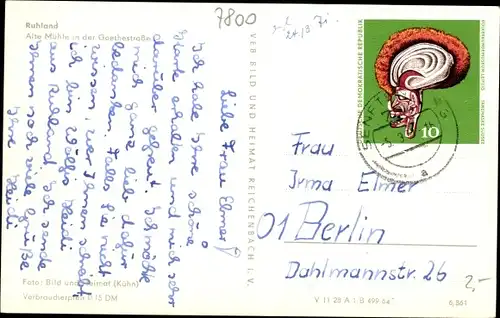 7800
Ruhland
Alte Mühle in der Goethestraße
Liebe Frau Elmer!
Ich habe Ihre schöne
Karte erhalten und mich sehr
darüber gefreut. Ich möchte
mich ganz lieb dafür
bedanken. Falls Sie nicht
wissen, wer Ihnen schreibt
ich bin Wolfis Heidi
aus Ruhland. Ich sende
Ihnen noch viele Grüße
Ihre Heidi
Foto: Bild und Heimat (Kühn)
Verbraucherpreis 0.15 DM
VEB BILD UND HEIMAT REICHENBACH I. V.
DEUTSCHE DEMOKRATISCHE REPUBLIK
10
SENFT
a
Frau
Irma Elmer
01 Berlin
Dahlmannstr. 26
2,-
V 11 28 A 1 B 499/64